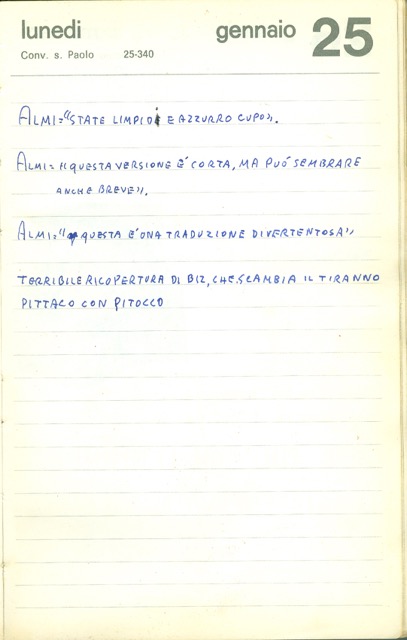 lunedì
gennaio 25
Conv. s. Paolo 25-340
ALMI="STATE LIMPIDI E AZZURRO CUPO".
ALMI= "QUESTA VERSIONE E' CORTA, MA PUÓ SEMBRARE
ANCHE BREVE".
ALMI="QUESTA E' UNA TRADUZIONE DIVERTENTOSA"
TERRIBILE RICOPERTURA DI BIZ, CHE SCAMBIA IL TIRANNO
PITTACO CON PITOCCO